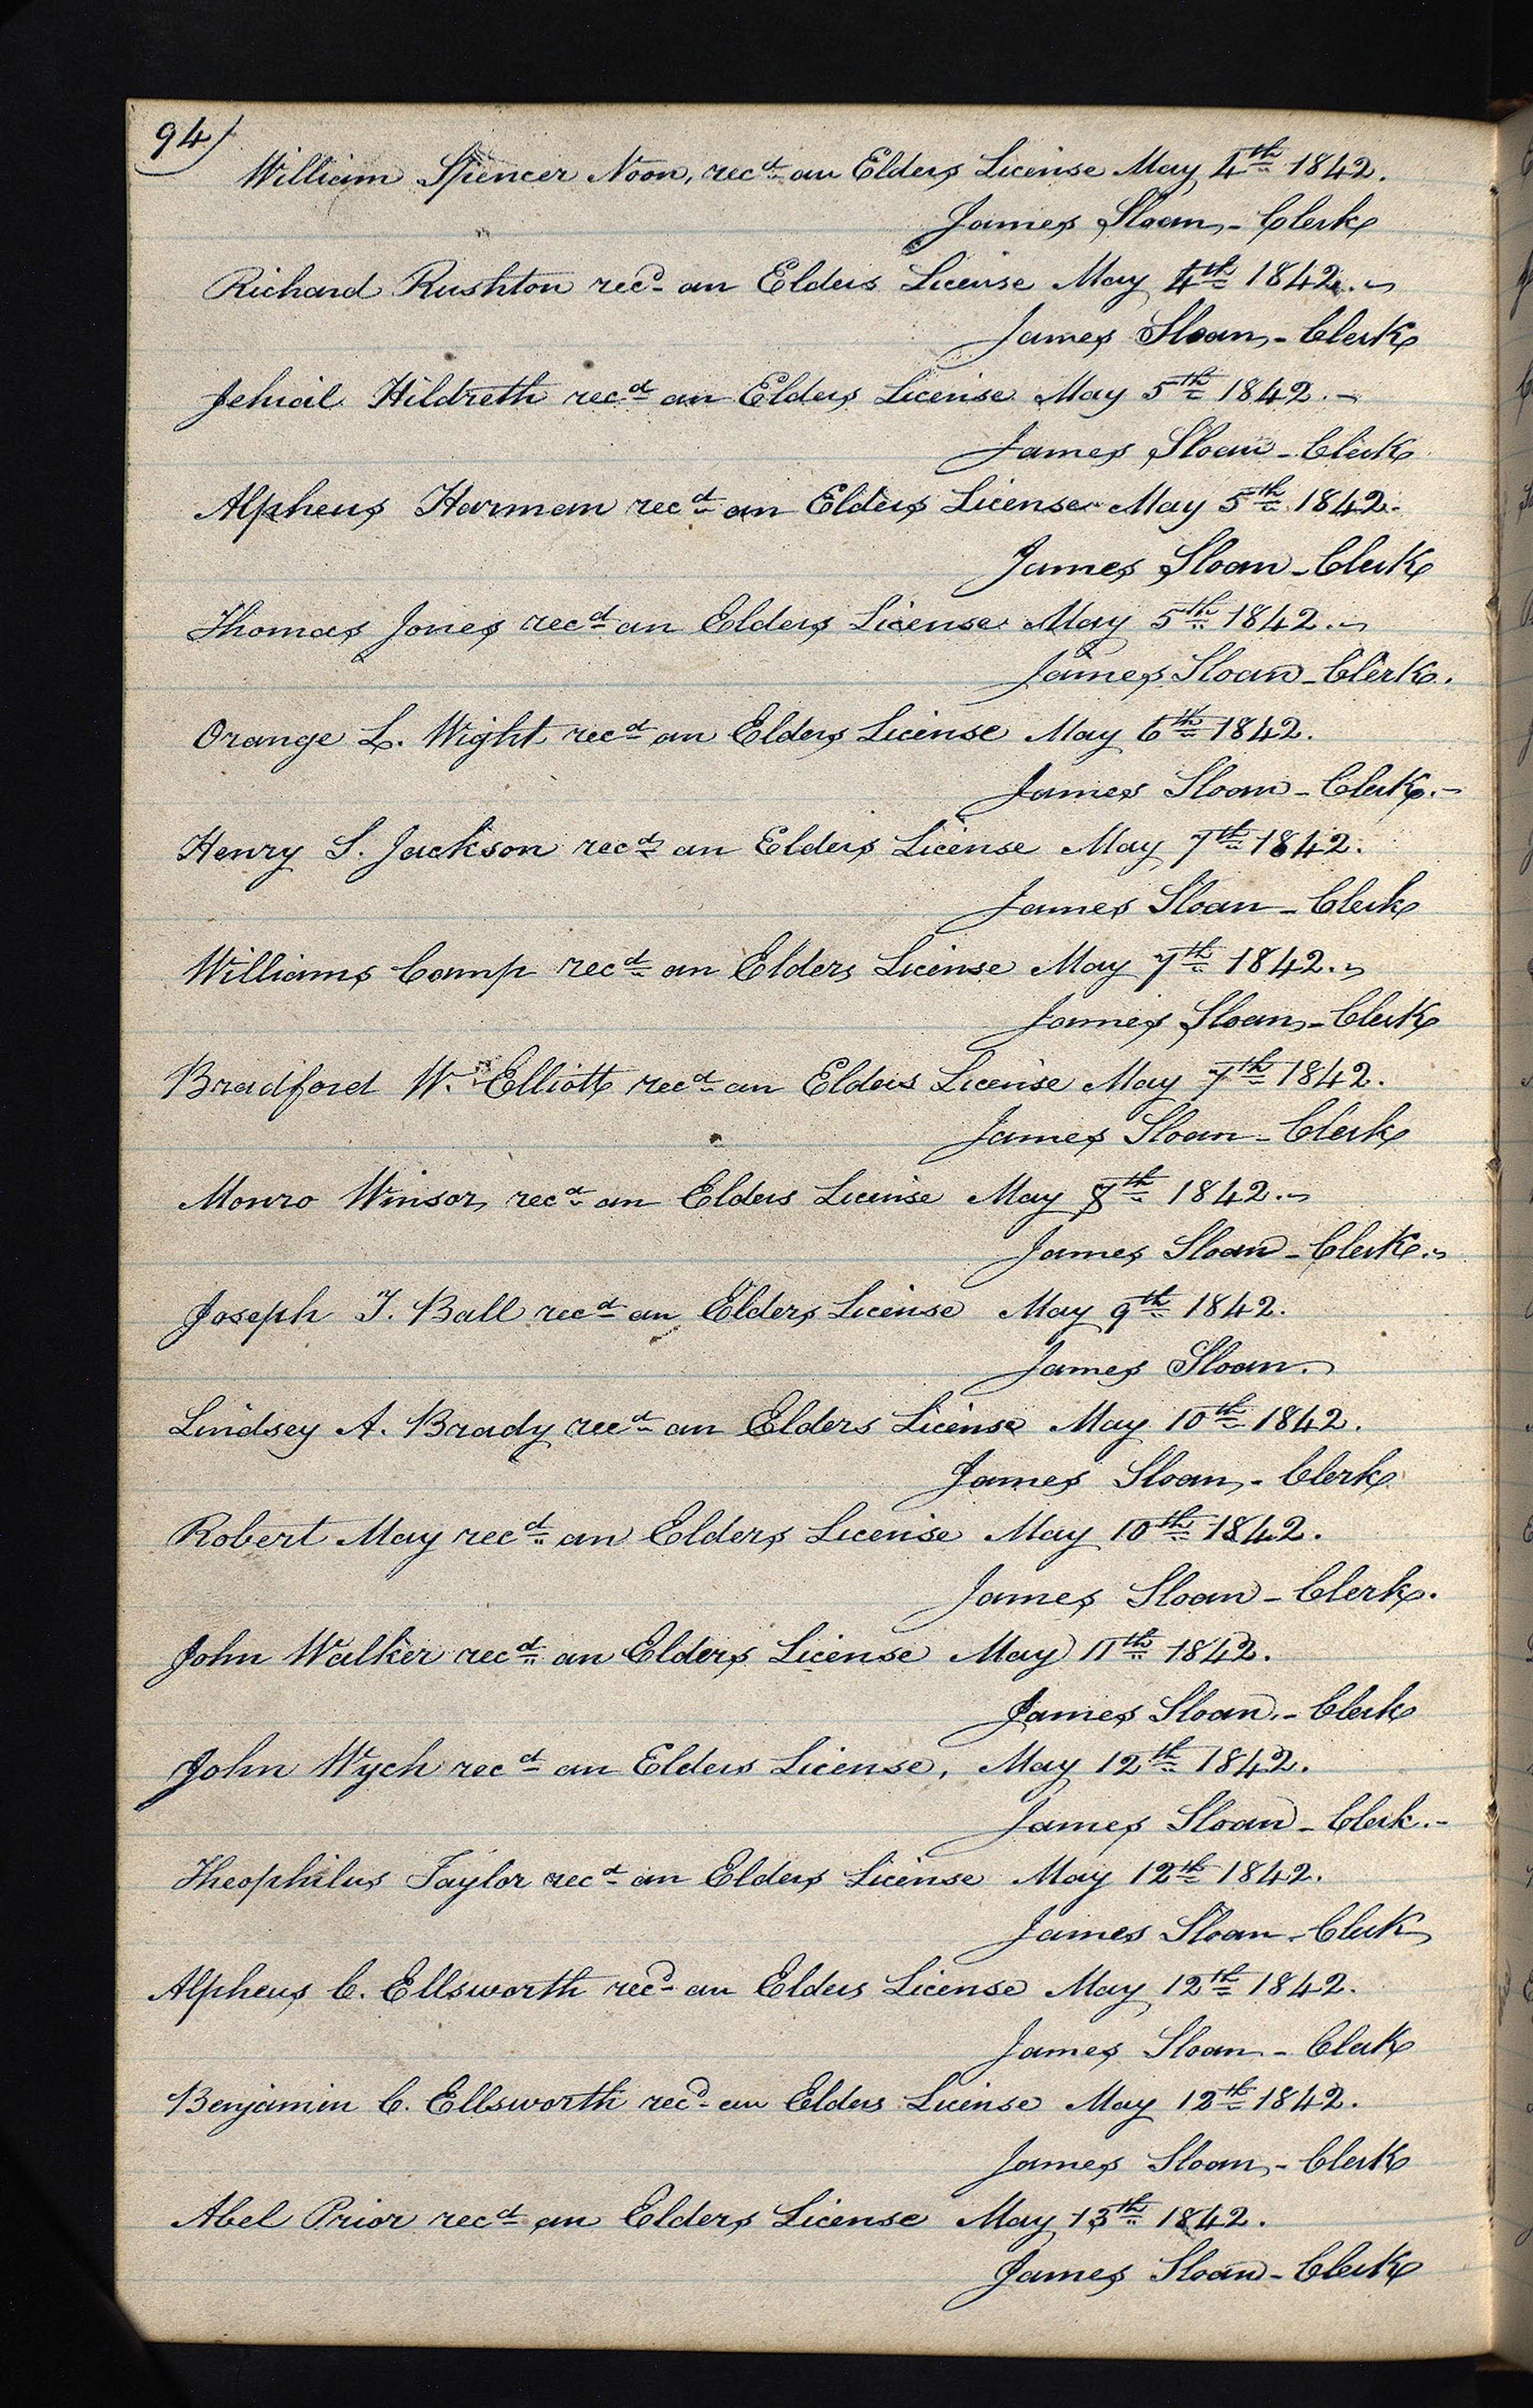 94)
William Spencer Noon, recd an Elders License May 4th 1842.
James Sloan, - Clerk
Richard Rushton recd an Elders License May 4th 1842.
James Sloan, - Clerk
Jehial Hildreth recd an Elders License May 5th 1842. -
James Sloan - Clerk
Alpheus Harman recd an Elders License May 5th 1842.
James Sloan - Clerk
Thomas Jones recd an Elders License May 5th 1842.
James Sloan - Clerk.
Orange L. Wight recd an Elders License May 6th 1842.
James Sloan - Clerk. -
Henry S. Jackson recd an Elders License May 7th 1842.
James Sloan - Clerk
Williams Camp recd an Elders License May 7th 1842.
James Sloan - Clerk
Bradford W. Elliott recd an Elders License May 7th 1842.
James Sloan - Clerk
Monro Winsor, recd an Elders License May 8th 1842.
James Sloan - Clerk.
Joseph T. Ball recd an Elders License May 9th 1842.
James Sloan.
Lindsey A. Brady recd an Elders License May 10th 1842.
James Sloan, - Clerk
Robert May recd an Elders License May 10th 1842.
James Sloan - Clerk.
John Walker recd an Elders License May 11th 1842.
James Sloan, - Clerk
John Wych recd an Elders License, May 12th 1842.
James Sloan - Clerk. -
Theophilus Taylor recd an Elders License May 12th 1842.
James Sloan - Clerk
Alpheus C. Ellsworth recd an Elders License May 12th 1842.
James Sloan - Clerk
Benjamin C. Ellsworth recd an Elders License May 12th 1842.
James Sloan, - Clerk
Abel Prior recd an Elders License May 13th 1842.
James Sloan - Clerk